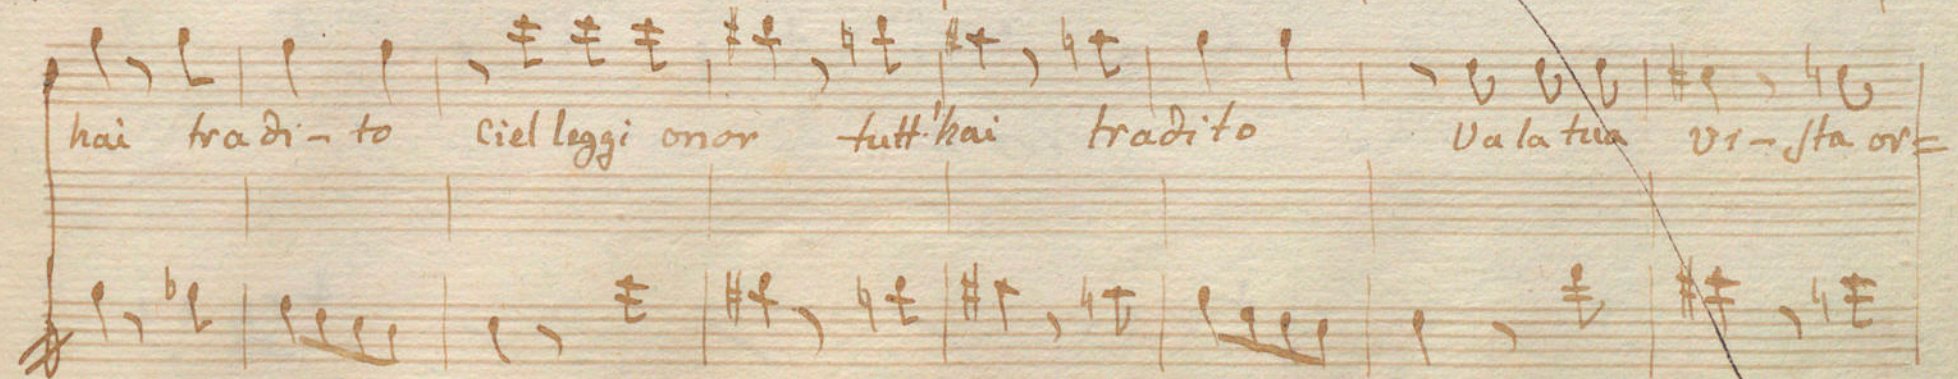 hai tradi-to Ciel leggi onor tutt'hai tradito Va la tua vi-sta or=